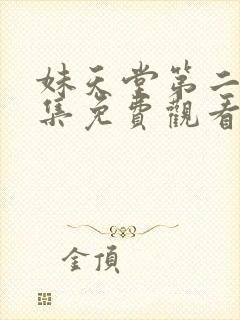 妹天堂第二
集免費觀看
金頂